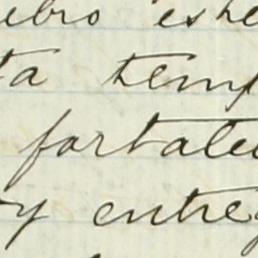 ebro este
ta temp
fortale
y entre